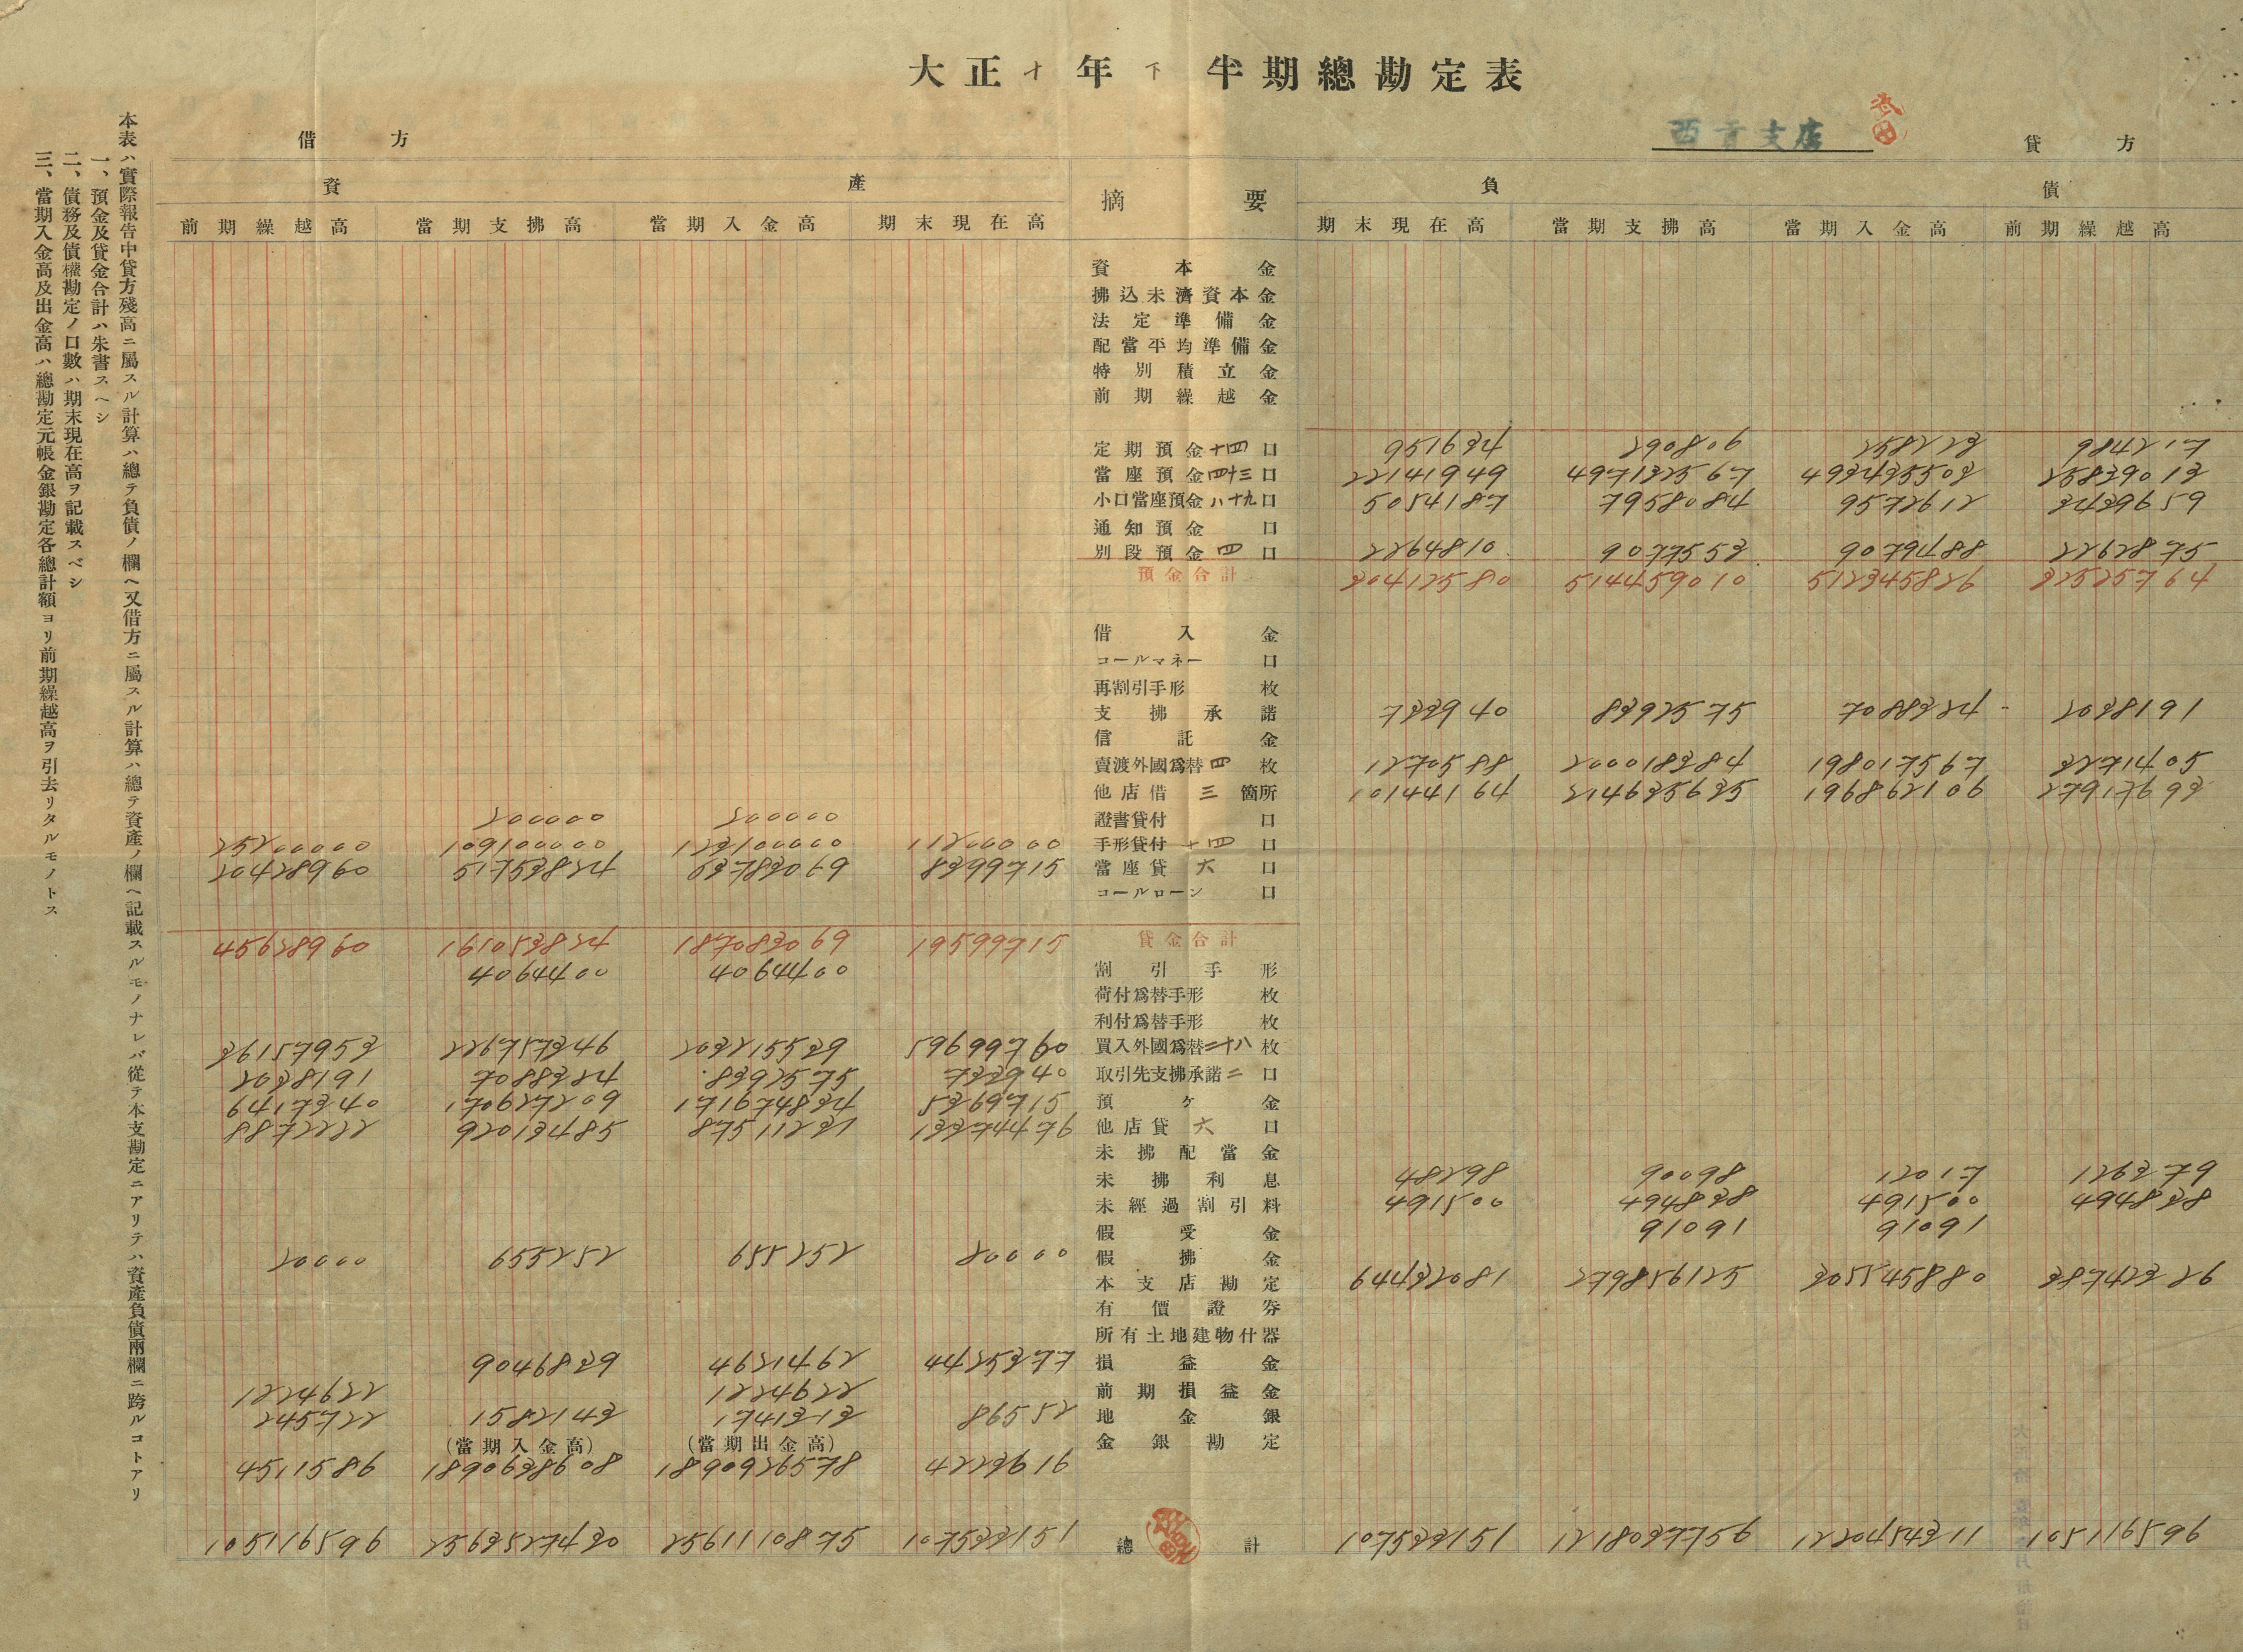 大正十年下半期總勘定表
西貢支店
武田
借方
貸方
資產
摘要
負債
前期繰越高 當期支拂高 當期入金高 期末現在高 期末現在高 當期支拂高 當期入金高 前期繰越高
資本金
拂込未濟資本金
法定準備金
配當平均準備金
特別積立金
前期繰越金
定期預金十四口 951634 290806 258223 984217
當座預金四十三口 22141949 497132567 493435503 25839013
小口當座預金八十九口 5054187 7958084 9572612 3439659
通知預金口
別段預金四口 2264810 9077553 9079488 2262875
預金合計 30412580 514459010 512345826 32525764
借入金
コールマネー口
再割引手形枚
支拂承諾 733940 8392575 7088324 2038191
信託金
賣渡外國爲替四枚 1270588 200018384 198017567 3271405
他店借三箇所 10144164 214635635 196862106 27917693
200000 200000 證書貸付口
25200000 109100000 123100000 11200000 手形貸付十四口
20428960 51753824 63783069 8399715 當座貸六口
コールローン口
45628960 161053824 187083069 19599715 貸金合計
4064400 4064400 割引手形
荷付爲替手形枚
利付爲替手形枚
36157953 226757346 203215539 59699760 買入外國爲替二十八枚
2038191 7088324 8392575 733940 取引先支拂承諾二口
6417340 170627209 171674834 5369715 預ケ金
8872222 92013485 87511231 13374476 他店貸六口
未拂配當金
未拂利息 48298 90098 12017 126379
未經過割引料 491500 494838 491500 494838
假受金 91091 91091
20000 655252 655252 20000 假拂金
本支店勘定 64432081 279856125 305545880 38742326
有價證券
所有土地建物什器
9046839 4621462 4425377 損益金
1224622 1224622 前期損益金
245722 1582143 1741313 86552 地金銀
(當期入金高) (當期出金高) 金銀勘定
4511586 1890638608 1890926578 4223616
105116596 2563527430 2561110875 107533151 總計 107533151 1218037756 1220454311 105116596
本表ハ實際報告中貸方殘高ニ屬スル計算ハ總テ負債ノ欄ヘ又借方ニ屬スル計算ハ總テ資產ノ欄ヘ記載スルモノナレバ從テ本支勘定ニアリテハ資產負債兩欄ニ跨ルコトアリ
一、預金及貸金合計ハ朱書スヘシ
二、債務及債權勘定ノ口數ハ期末現在高ヲ記載スベシ
三、當期入金高及出金高ハ總勘定元帳金銀勘定各總計額ヨリ前期繰越高ヲ引去リタルモノトス